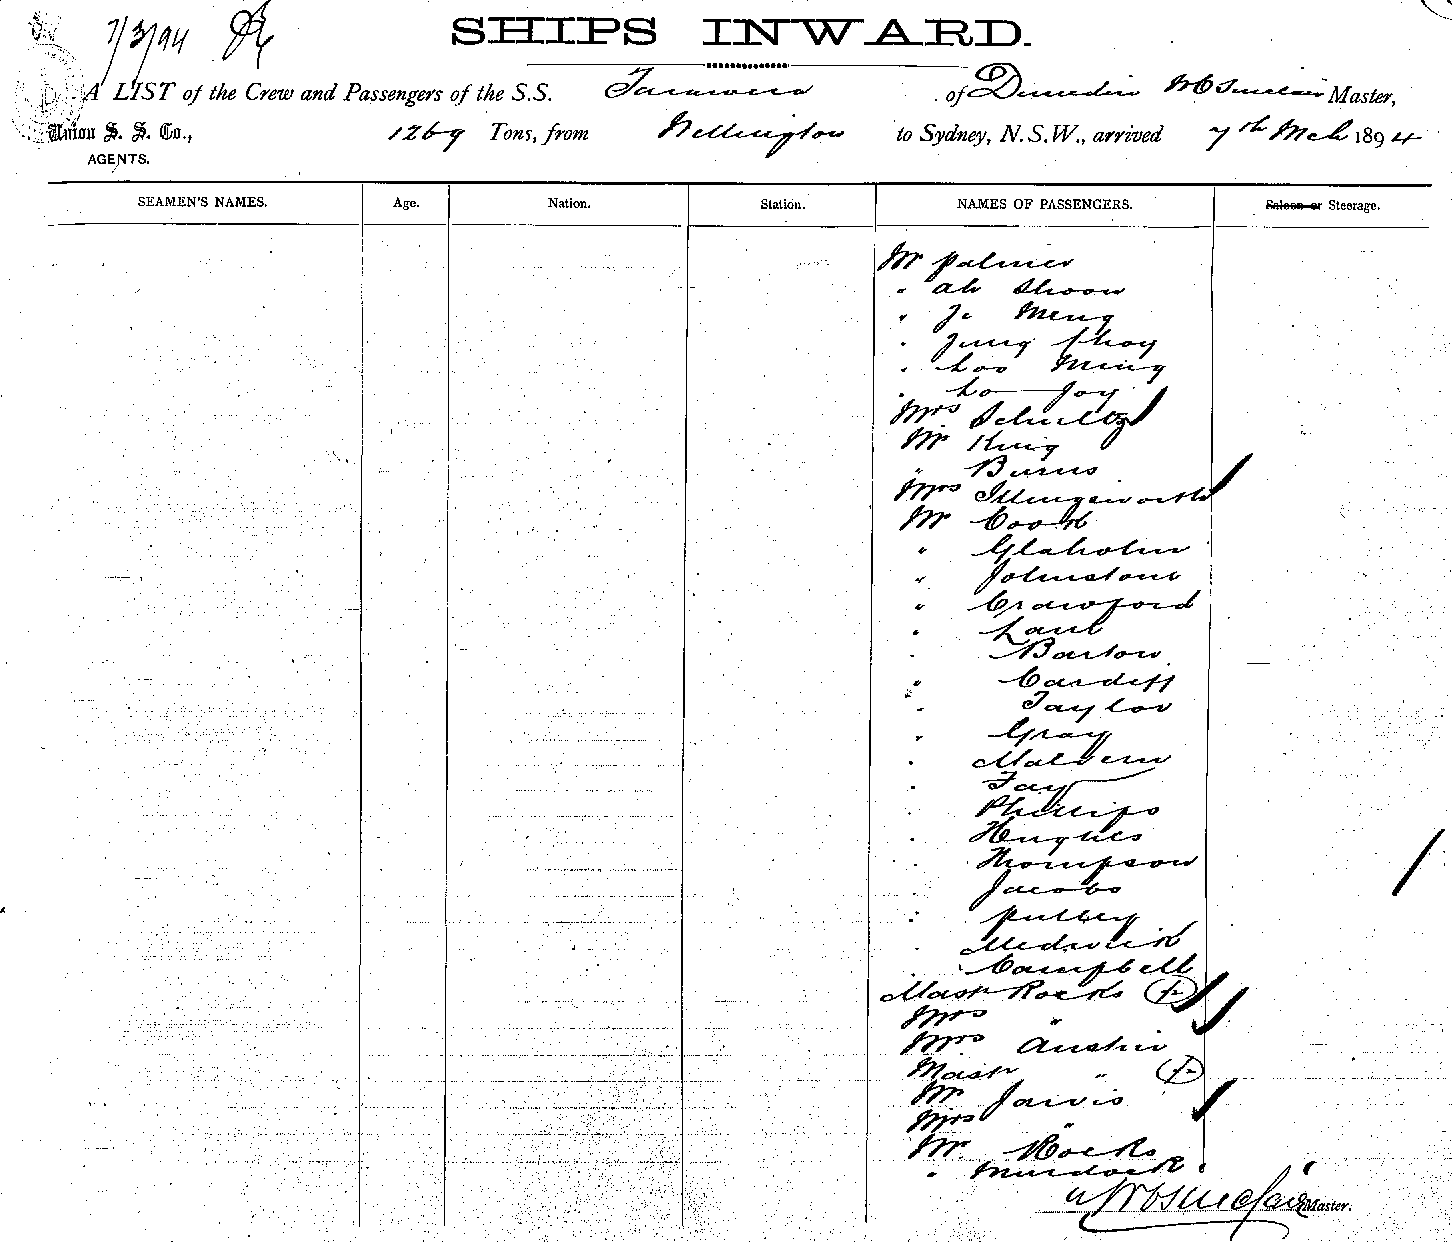 7/3/94
SHIPS INWARD.
A LIST of the Crew and Passengers of the S.S. Tarawera of Dunedin W C Sinclair Master,
Union S. S. Co., 1269 Tons, from Wellington to Sydney, N.S.W., arrived 7th Mch 1894
AGENTS.
SEAMEN'S NAMES. Age. Nation. Station. NAMES OF PASSENGERS. Saloon or Steerage.
Mr Palmer
" Ah Shoon
" Je Meng
" Jung Choy
" Loo Ming
" Lo Joy
Mrs Schultz
Mr King
" Burns
Mrs Illingsworth
Mr Cook
" Glaholm
" Johnstone
" Crawford
" Lane
" Barton
" Cardiff
" Taylor
" Gray
" Malvern
" Fay
" Phillips
" Hughes
" Thompson
" Jacobs
" Pulley
"
" Campbell
Mastr Rocks
Mrs "
Mrs Austin
Mastr "
Mr Jarvis
Mrs "
Mr Rocks
" Murdock
W C Sinclair Master.